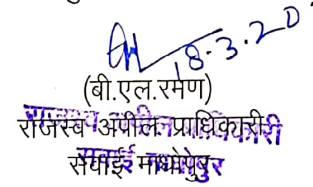 18.3.20
(बी.एल.रमण)
राजस्व अपील प्राधिकारी
सवाई माधोपुर